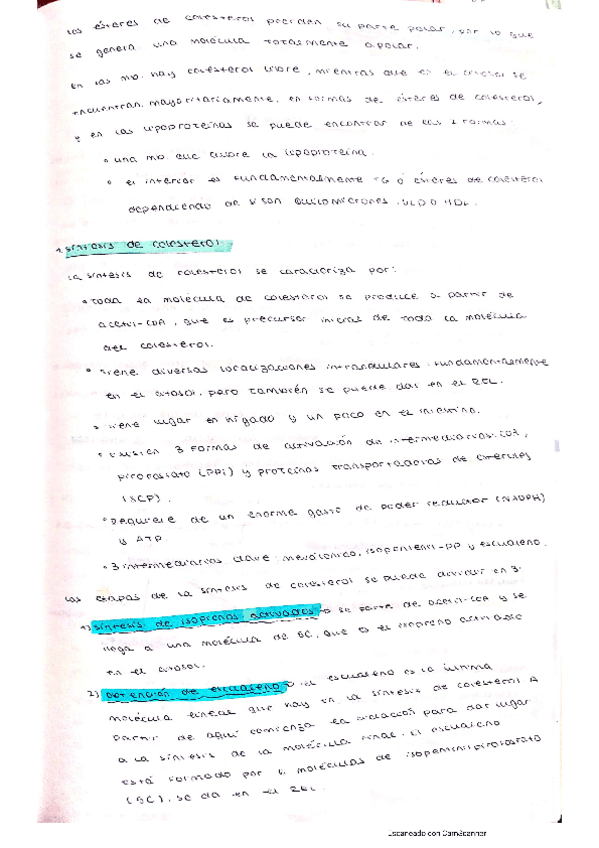 los ésteres de colesterol pierden su parte polar, por lo que
se genera una molécula totalmente apolar.
en las mb. hay colesterol libre, mientras que en el citosol se
encuentran, mayoritariamente, en formas de ésteres de colesterol,
y en las lipoproteínas se puede encontrar de las 2 formas:
• una mb. que cubre la lipoproteína.
• el interior es fundamentalmente TG o ésteres de colesterol
dependiendo de si son quilomicrones, VLD o HDL.
síntesis de colesterol
La síntesis de colesterol se caracteriza por:
• toda la molécula de colesterol se produce a partir de
acetil-COA, que es precursor inicial de toda la molécula
del colesterol.
• Tiene diversas localizaciones intracelulares. Fundamentalmente
en el citosol, pero también se puede dar en el REL.
• Tiene lugar en hígado y un poco en el intestino.
• Existen 3 formas de activación de intermediarios: COA,
pirofosfato (PPi) y proteínas transportadoras de esteroles
(SCP).
• Requiere de un enorme gasto de poder reductor (NADPH)
y ATP.
• 3 intermediarios clave: mevalónico, isopentenil-PP y escualeno.
Las etapas de la síntesis de colesterol se puede dividir en 3:
1) síntesis de isoprenos activados → se parte de acetil-COA y se
llega a una molécula de 5C, que es el isopreno activado
en el citosol.
2) obtención de escualeno → el escualeno es la última
molécula lineal que hay en la síntesis de colesterol. A
partir de aquí comienza la ciclación para dar lugar
a la síntesis de la molécula final. El escualeno
está formado por 6 moléculas de isopentenilpirofosfato
(5C), se da en el REL.
Escaneado con CamScanner